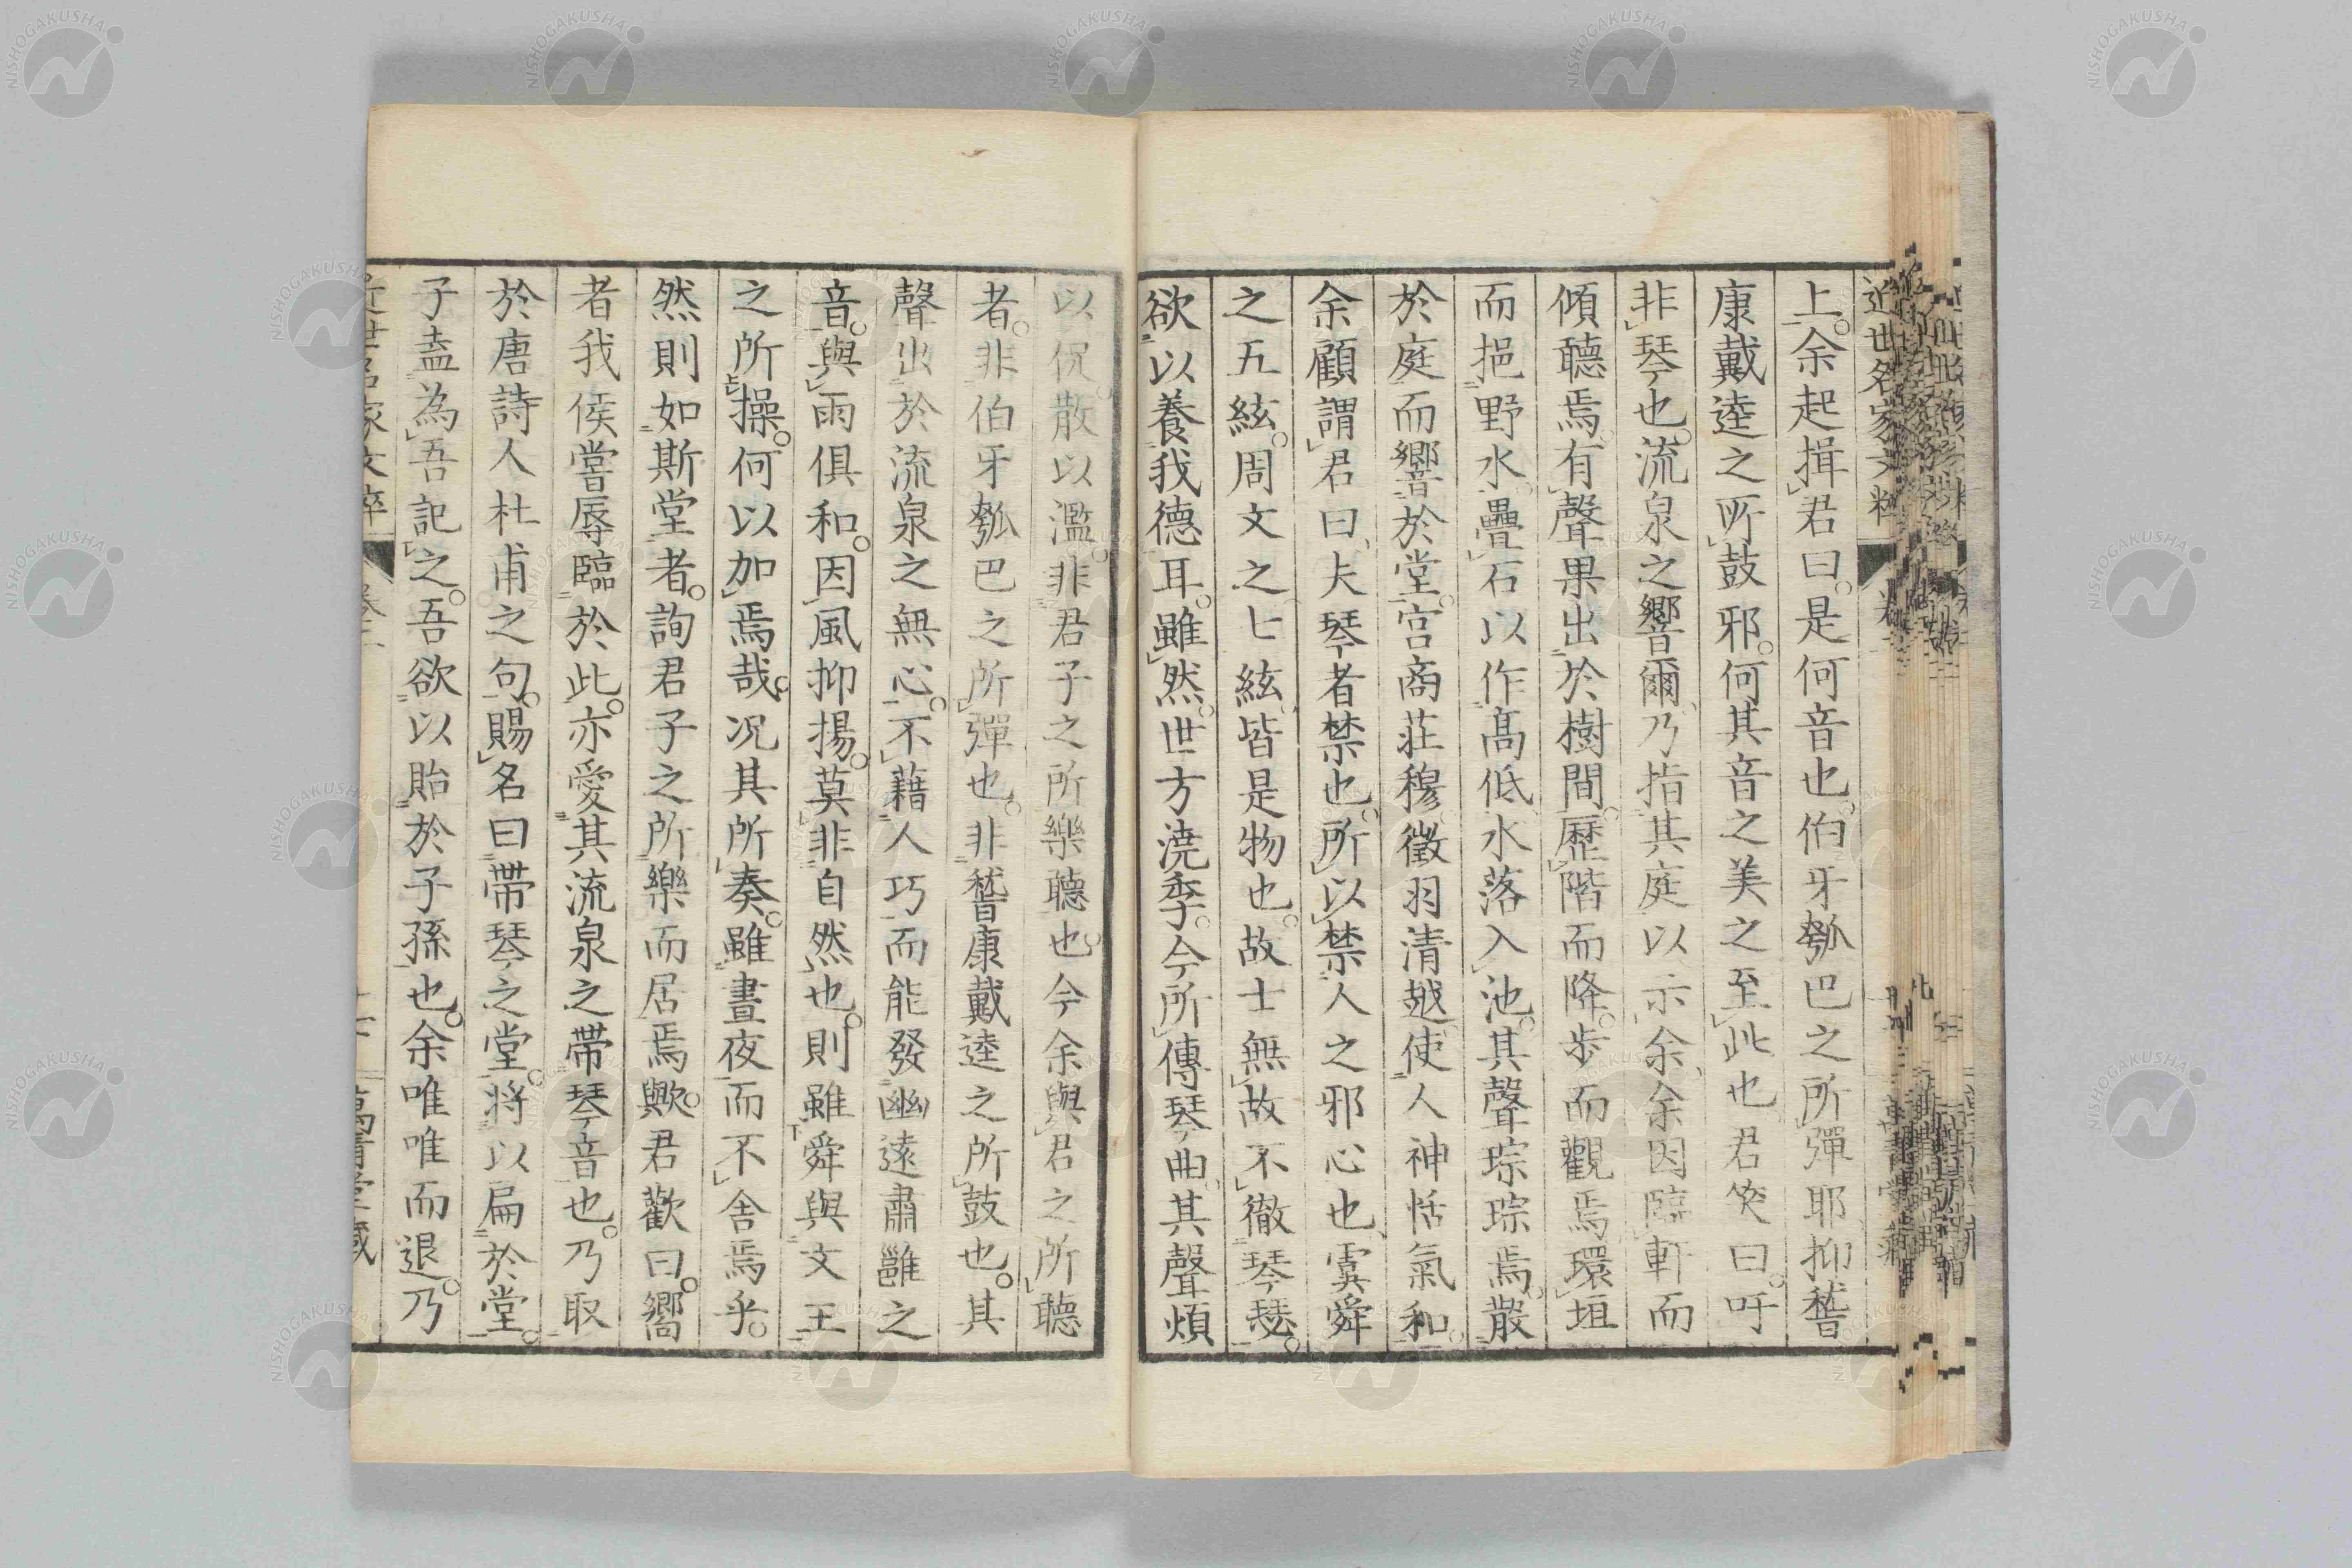 近世名家文粹
上。余起揖君曰。是何音也。伯牙瓠巴之所彈耶。抑嵆
康戴逵之所鼓邪。何其音之美之至此也。君笑曰。吁
非琴也。流泉之響爾。乃指其庭以示余。余因臨軒而
傾聽焉。有聲果出於樹間。歷階而降。步而觀焉。環垣
而挹野水。疊石以作高低。水落入池。其聲琮琮焉。散
於庭而響於堂。宮商莊穆徵羽清越。使人神恬氣和。
余顧謂君曰。夫琴者禁也。所以禁人之邪心也。虞舜
之五絃。周文之七絃。皆是物也。故士無故不徹琴瑟。
欲以養我德耳。雖然。世方澆季。今所傳琴曲。其聲煩
以侻。散以濫。非君子之所樂聽也。今余與君之所聽
者。非伯牙瓠巴之所彈也。非嵆康戴逵之所鼓也。其
聲出於流泉之無心。不藉人巧而能發幽遠肅雝之
音。與雨俱和。因風抑揚。莫非自然也。則雖舜與文王
之所操。何以加焉哉。況其所奏。雖晝夜而不舍焉乎。
然則如斯堂者。詢君子之所樂而居焉歟。君歡曰。嚮
者我侯嘗辱臨於此。亦愛其流泉之帶琴音也。乃取
於唐詩人杜甫之句。賜名曰帶琴之堂。將以扁於堂。
子盍為吾記之。吾欲以貽於子孫也。余唯唯而退。乃
近世名家文粹 卷二
NISHOGAKUSHA